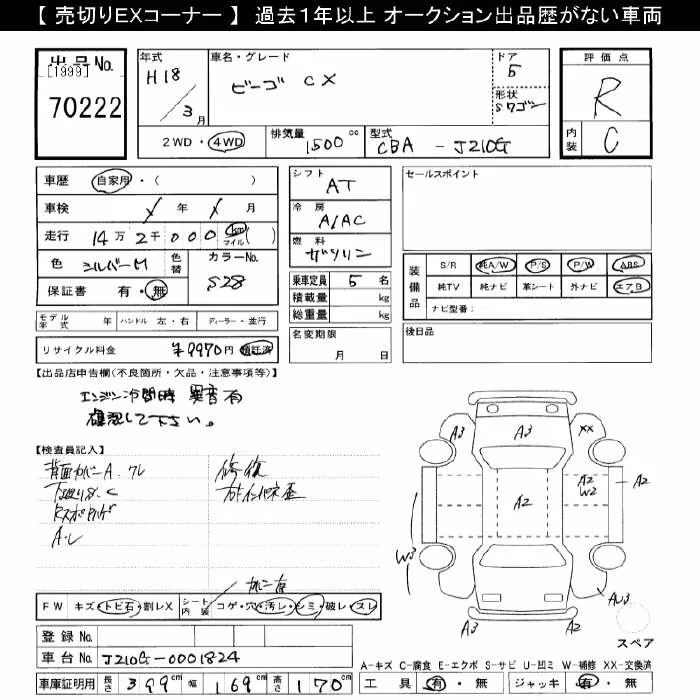 【 売切りEXコーナー 】 過去1年以上 オークション出品歴がない車両
出品No.
[1999]
70222
年式 H18 / 3月
車名・グレード ビーゴ CX
ドア 5
形状 Sワゴン
評価点 R
内装 C
2WD・4WD 排気量 1500cc 型式 CBA - J210G
車歴 自家用・( )
車検 年 月
走行 14万2千000 km マイル( )
色 シルバーM 色替 カラーNo. S28
保証書 有・無
シフト AT
冷房 A/AC
燃料 ガソリン
乗車定員 5名
積載量 kg
総重量 kg
セールスポイント
装備品 S/R 純A/W P/S P/W ABS
純TV 純ナビ 革シート 外ナビ エアB
ナビ型番:
モデル年式 年 ハンドル 左・右 ディーラー・並行
リサイクル料金 ¥9970円 預託済
名変期限 月 日
後日品
【出品店申告欄(不良箇所・欠品・注意事項等)】
エンジン冷間時 異音有
確認して下さい。
【検査員記入】
背面カバーA. ワレ
下廻りS. C
A-レ
修復
A3 A3 XX
A2 A2 W2 A2
W3
A3 AW3
スペア
FW キズ・トビ石・割レX シート内装 コゲ・穴・汚レ・シミ・破レ・スレ
登録No.
車台No. J210G-0001824
車庫証明用 長さ 399cm 幅 169cm 高さ 170cm
A-キズ C-腐食 E-エクボ S-サビ U-凹ミ W-補修 XX-交換済
工具 有・無 ジャッキ 有・無